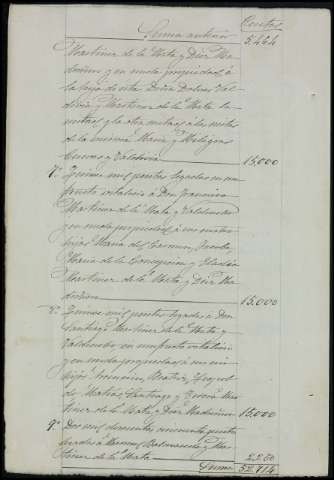 Pesetas
Suma anterior 5.464
Martinez de la Mata y Diez Ma-
droñero y en nuda propiedad á
la hija de esta Doña Dolores Val-
divia y Martinez de la Mata la
mitad y la otra mitad á los nietos
de la misma Maria y Milagros
Cuevas y Valdivia 15,000
7º Quince mil pesetas legadas en usu-
fructo vitalicio á Don Francisco
Martinez de la Mata y
y en nuda propiedad á sus cuatro
hijos Maria del Carmen,
Maria de la Concepcion y Eladia
Martinez de la Mata y Diez Ma-
droñero 15,000
8º Quince mil pesetas legadas á Don
Santiago Martinez de la Mata y
en usufructo vitalicio
y en nuda propiedad á sus
hijos Beatriz,
Santiago y Teresa Mar-
tinez de la Mata y Diez Madroñero 15,000
9º Dos mil doscientas cincuenta pesetas
legadas á y Mar-
tinez de la Mata 2,250
Suma 52,714